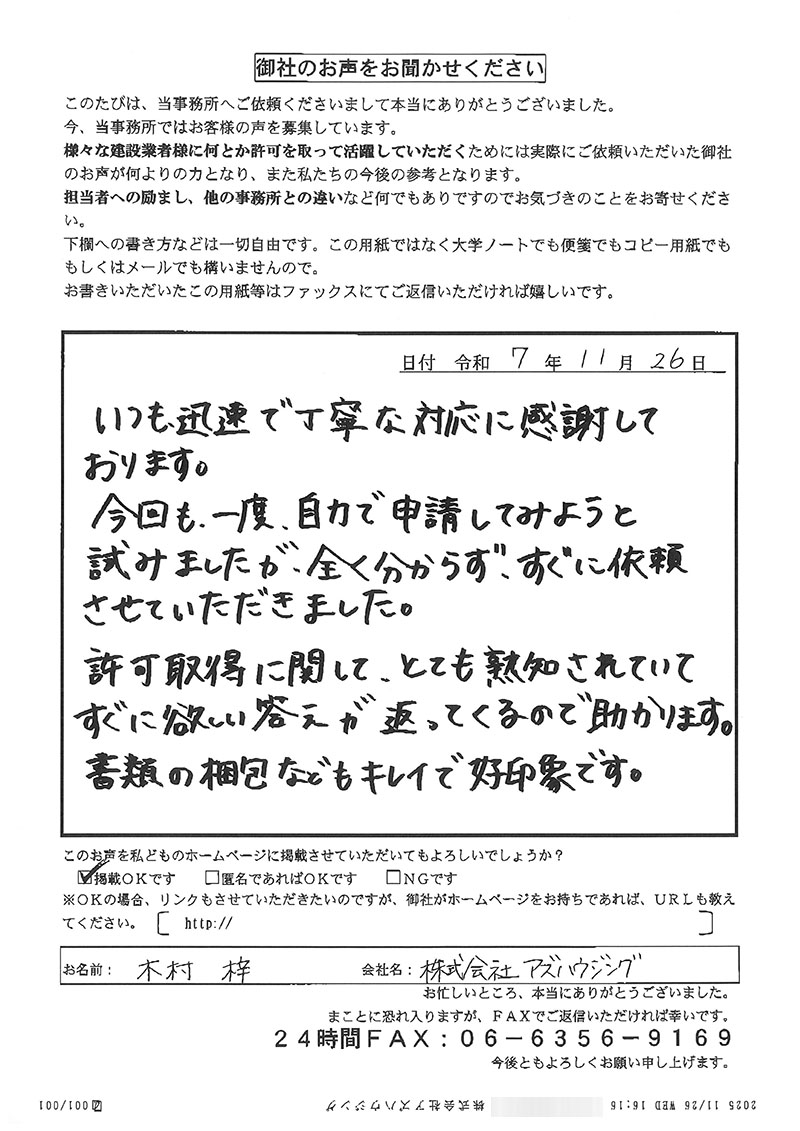 御社のお声をお聞かせください
このたびは、当事務所へご依頼くださいまして本当にありがとうございました。
今、当事務所ではお客様の声を募集しています。
様々な建設業者様に何とか許可を取って活躍していただくためには実際にご依頼いただいた御社
のお声が何よりの力となり、また私たちの今後の参考となります。
担当者への励まし、他の事務所との違いなど何でもありですのでお気づきのことをお寄せくださ
い。
下欄への書き方などは一切自由です。この用紙ではなく大学ノートでも便箋でもコピー用紙でも
もしくはメールでも構いませんので。
お書きいただいたこの用紙等はファックスにてご返信いただければ嬉しいです。
日付 令和 7 年 11 月 26 日
いつも迅速で丁寧な対応に感謝して
おります。
今回も、一度、自力で申請してみようと
試みましたが、全く分からず、すぐに依頼
させていただきました。
許可取得に関して、とても熟知されていて
すぐに欲しい答えが返ってくるので助かります。
書類の梱包などもキレイで好印象です。
このお声を私どものホームページに掲載させていただいてもよろしいでしょうか？
☑掲載ＯＫです □匿名であればＯＫです □ＮＧです
※ＯＫの場合、リンクもさせていただきたいのですが、御社がホームページをお持ちであれば、ＵＲＬも教え
てください。〔 http:// 〕
お名前： 木村 梓 会社名： 株式会社アズハウジング
お忙しいところ、本当にありがとうございました。
まことに恐れ入りますが、ＦＡＸでご返信いただければ幸いです。
２４時間ＦＡＸ：０６－６３５６－９１６９
今後ともよろしくお願い申し上げます。
2025 11/26 WED 16:16 株式会社アズハウジング 001/001